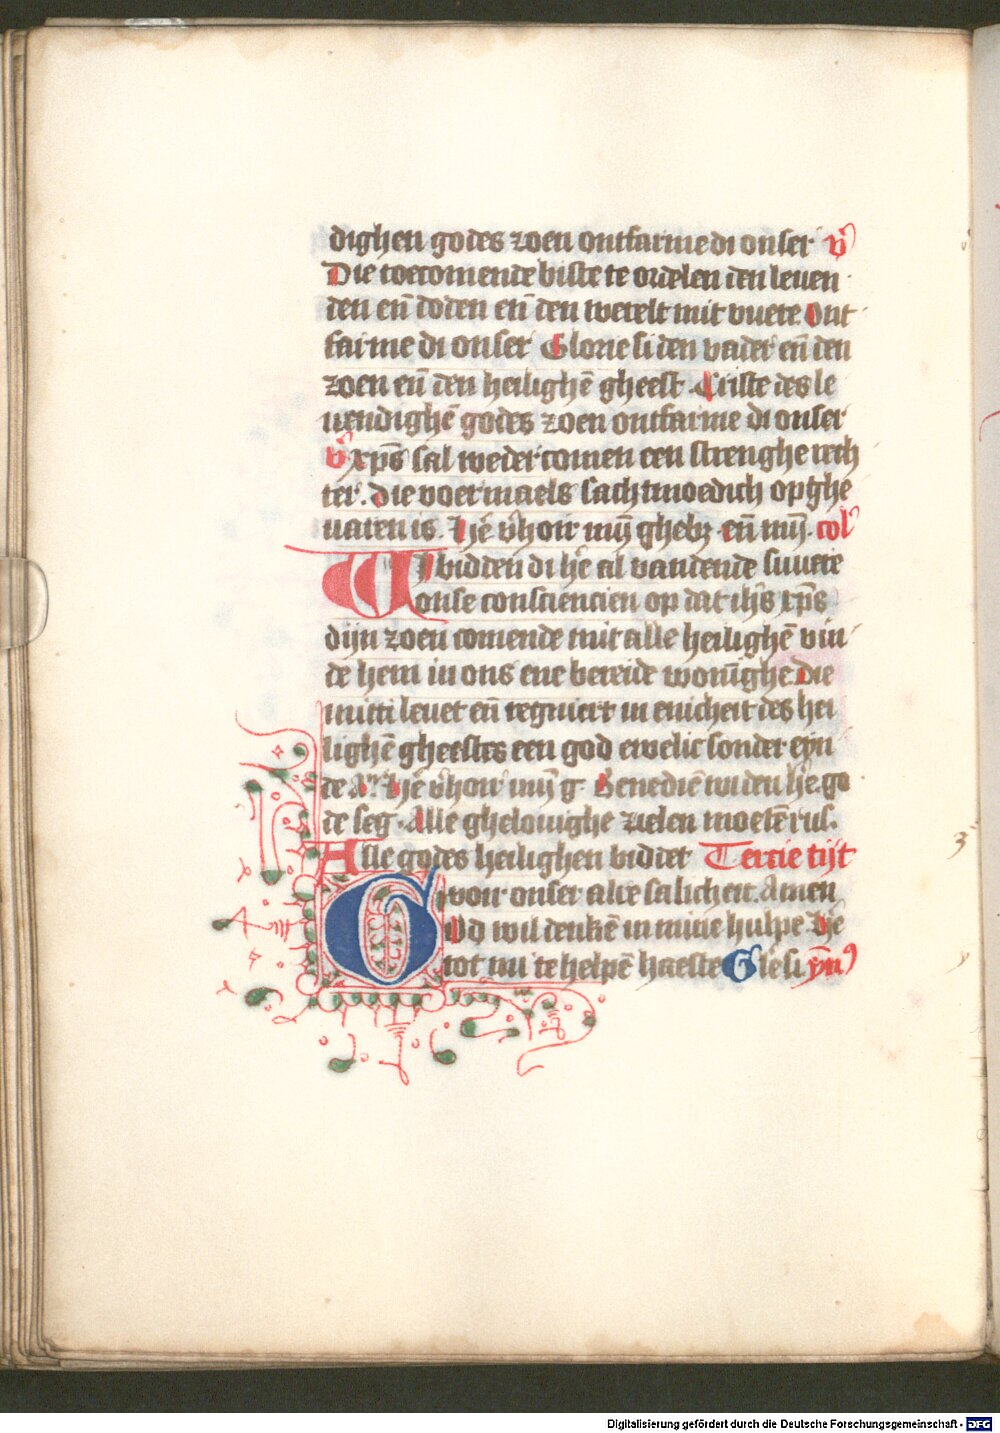 dighen godes zoen ontfarme di onser v̄
Die toecomende biste te ordelen den leuen
den eñ doden eñ den werelt mit vuere. Ont
farme di onser Glorie si den vader eñ den
zoen eñ den heilighē gheest. Criste des le
uendighē godes zoen ontfarme di onser
v̄ xp̄s sal weder comen een strenghe rech
ter. die voermaels sachtmoedich opghe
uaren is. Hē v̄hoir mijn ghebz eñ mijn. col̄
Wi bidden di hē al vandende suuere
onse consciencien op dat ih̄s xp̄s
dijn zoen comende mit alle heilighē vin
de hem in ons ene bereide woninghe Die
mitti leuet eñ regniert in enicheit des hei
lighē gheestes een god ewelic sonder eyn
de Am̄ hē v̄hoir mijn g. Benediē wi den hē. go
de seg. Alle ghelouighe zielen moetē rus.
Alle godes heilighen biddet Tercie tijt
voir onser alre salicheit. Amen
God wil denkē in mine hulpe hē
tot mi te helpē haeste Glē si ȳn9
Digitalisierung gefördert durch die Deutsche Forschungsgemeinschaft - DFG